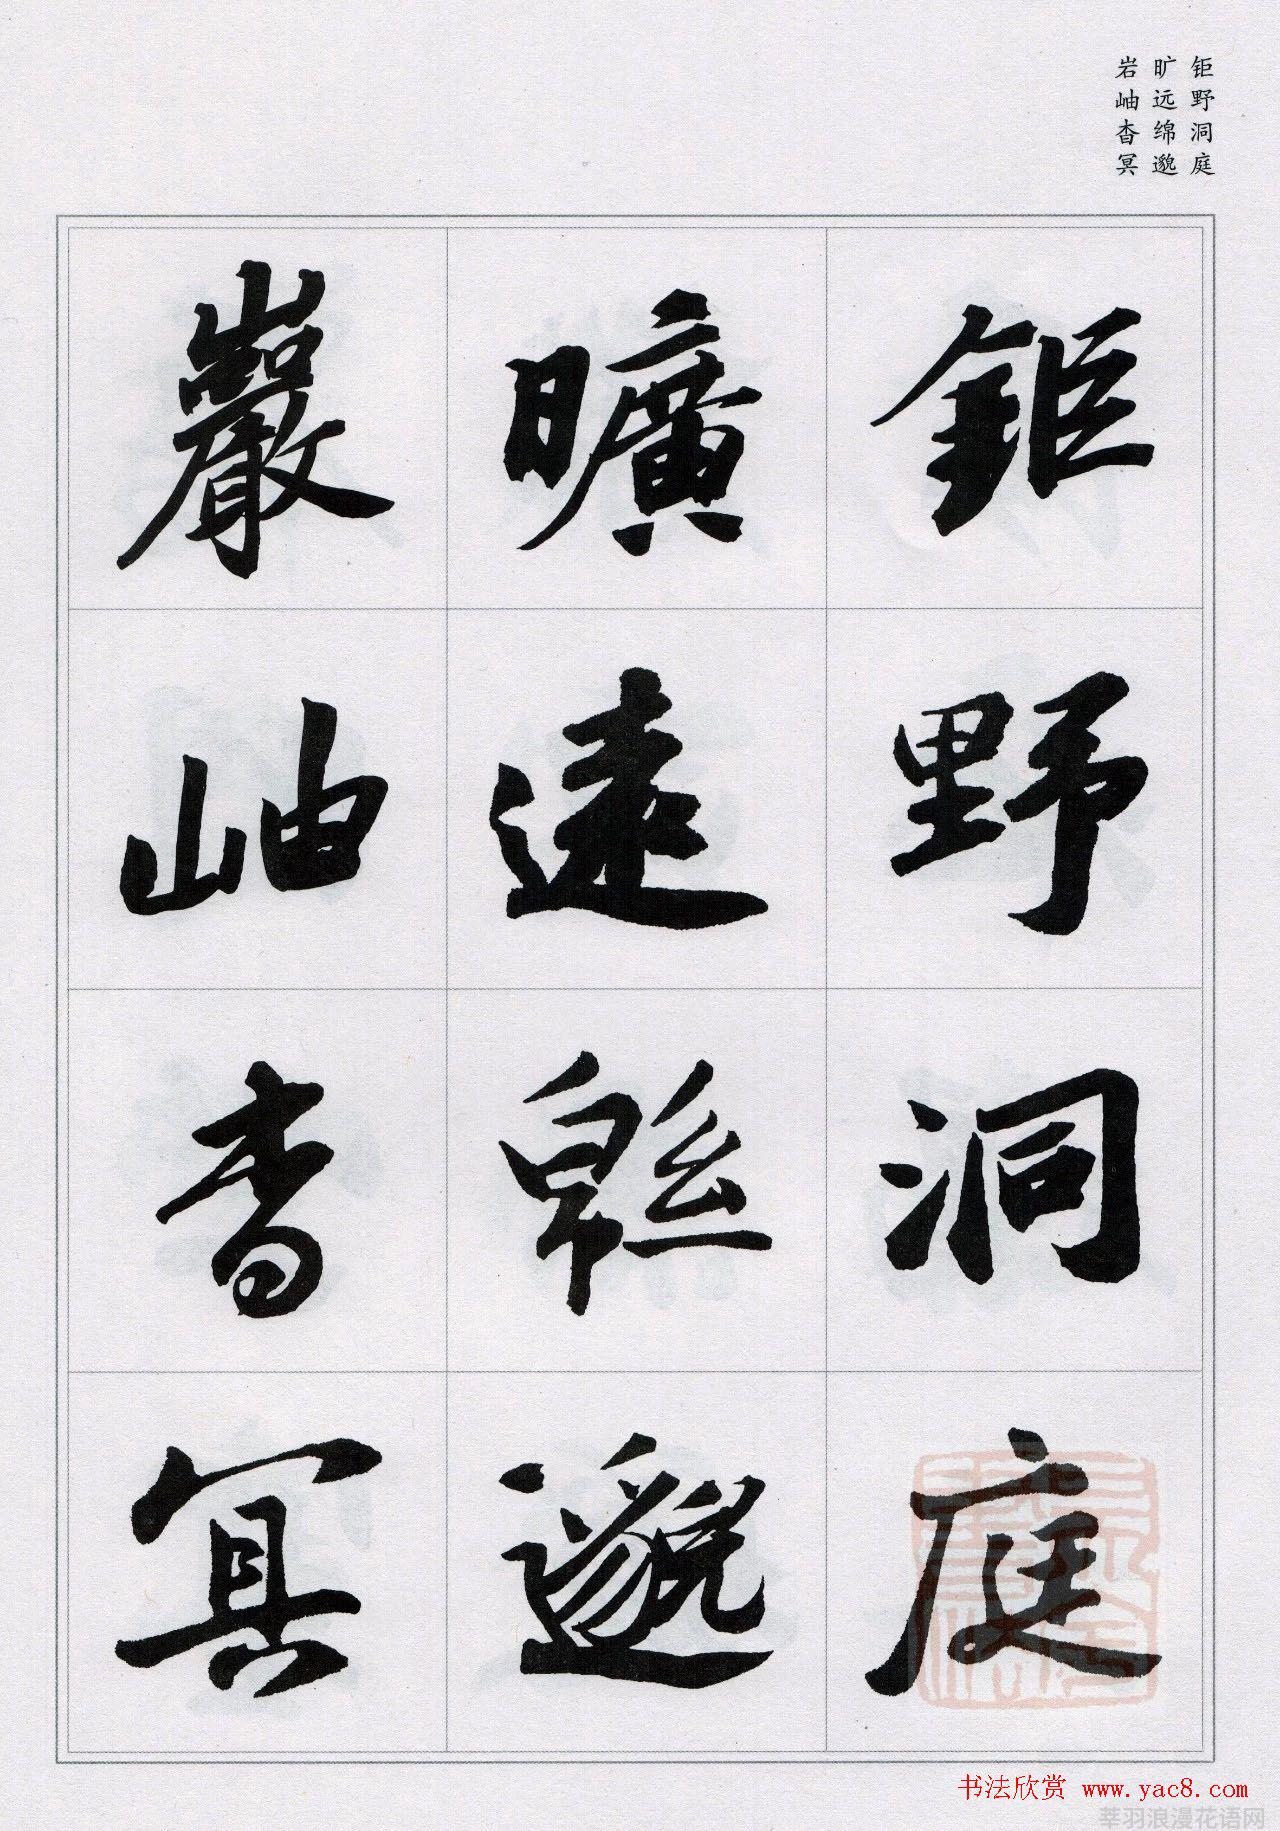 钜野洞庭
旷远绵邈
岩岫杳冥
鉅野洞庭
曠遠緜邈
巖岫杳冥
书法欣赏 www.yac8.com
莘羽浪漫花语网